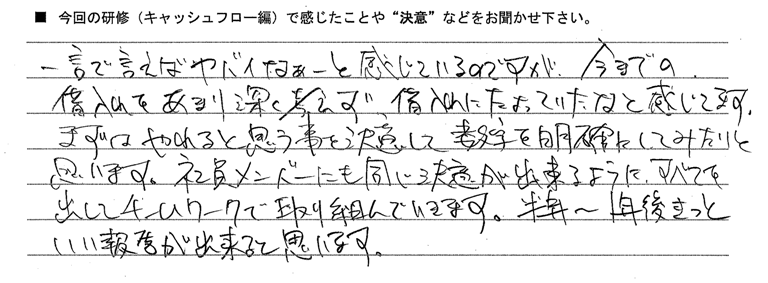 ■ 今回の研修（キャッシュフロー編）で感じたことや“決意”などをお聞かせ下さい。
一言で言えばヤバイなぁーと感じているのですが、今までの
借入れをあまり深く考えず借入れにたよっていたなと感じてます。
まずはやれると思う事を決意して数字を明確にしてみたいと
思います。社員メンバーにも同じ決意が出来るように、すべてを
出してチームワークで取り組んでいきます。半年～1年後きっと
いい報告が出来ると思います。